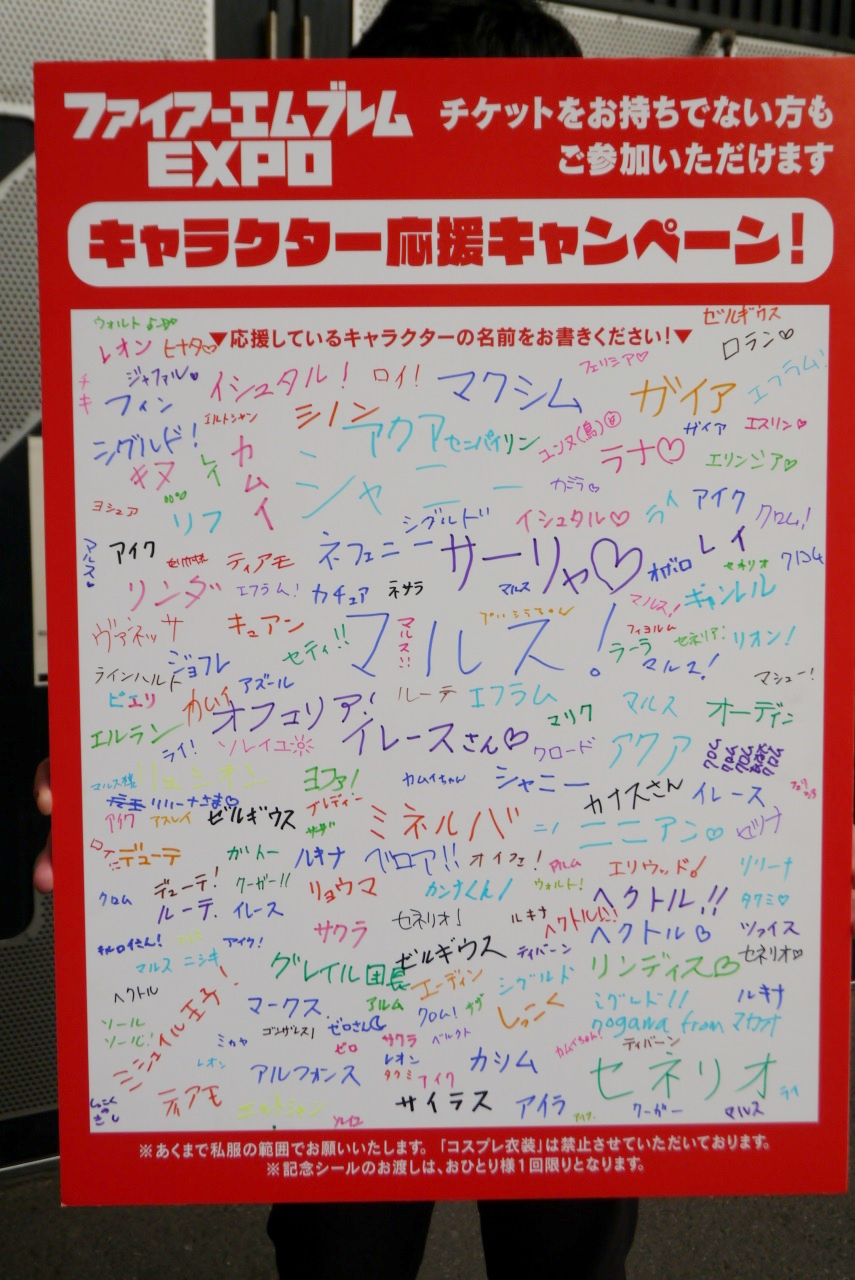 ファイアーエムブレム
EXPO
チケットをお持ちでない方も
ご参加いただけます
キャラクター応援キャンペーン!
▼応援しているキャラクターの名前をお書きください!▼
ウォルト
ゼルギウス
レオン ヒナタ♡
ロラン♡
ジャファル♥ イシュタル! ロイ! マクシム フェリシア♡ ガイア エフラム!
フィン エルトシャン シノン
シグルド! アクア セニパイリン ユンヌ(鳥) ラナ♡ ガイア エスリン♡
キヌ レイ カムイ シャニー エリンジア♡
カミラ♡
ヨシュア リフ シグルド イシュタル♡ アイク クロム!
マルス♥ アイク ティアモ ネフェニー サーリャ♡ オボロ レイ クロム
セネリオ
リンダ エフラム! カチュア ネサラ マルス マルス! ギャンレル
ヴァネッサ キュアン セティ!! マルス!! マルス! フィヨルム ラーラ セネリア! リオン!
ラインハルト ジョフレ マルス! マシュー!
ピエリ カムイ アズール ルーテ エフラム マルス オーディン
オフェリア! マリク
エルラン ライ! ソレイユ イレースさん♡ クロード アクア クロム クロム クロム クロム
マルス様 ヨファ! カムイちゃん シャニー カナスさん イレース
リリーナさま♡
アイク アスレイ ゼルギウス ブレディー ミネルバ ニノ ニニアン♡ セリナ
デューテ ガトー ルキナ ベロア!! オイフェ! アルム エリウッド! リリーナ
クロム デューテ! クーガー!! リョウマ カンナくん! ウォルト! ヘクトル!! タクミ♡
ルーテ. イレース サクラ セネリオ! ルキナ ヘクトル!! ヘクトル♡ ツァイス
アイク! ゼルギウス ティバーン セネリオ♡
マルス ニシキ グレイル団長 エーディン シグルド リンディス♡
ヘクトル ミシェイル王子! マークス. アルム クロム! しっこく シグルド!! ルキナ
ソール ゴンザレス! ゼロさん nogawa from マカオ
ソール! ミカヤ ゼロ サクラ ベルクト カムイちゃん! ティバーン
レオン アルフォンス レオン カシム セネリオ
タクミ アイク
ティアモ サイラス アイラ クーガー マルス
しっこくのきし ソレイユ
※あくまで私服の範囲でお願いいたします。「コスプレ衣装」は禁止させていただいております。
※記念シールのお渡しは、おひとり様1回限りとなります。